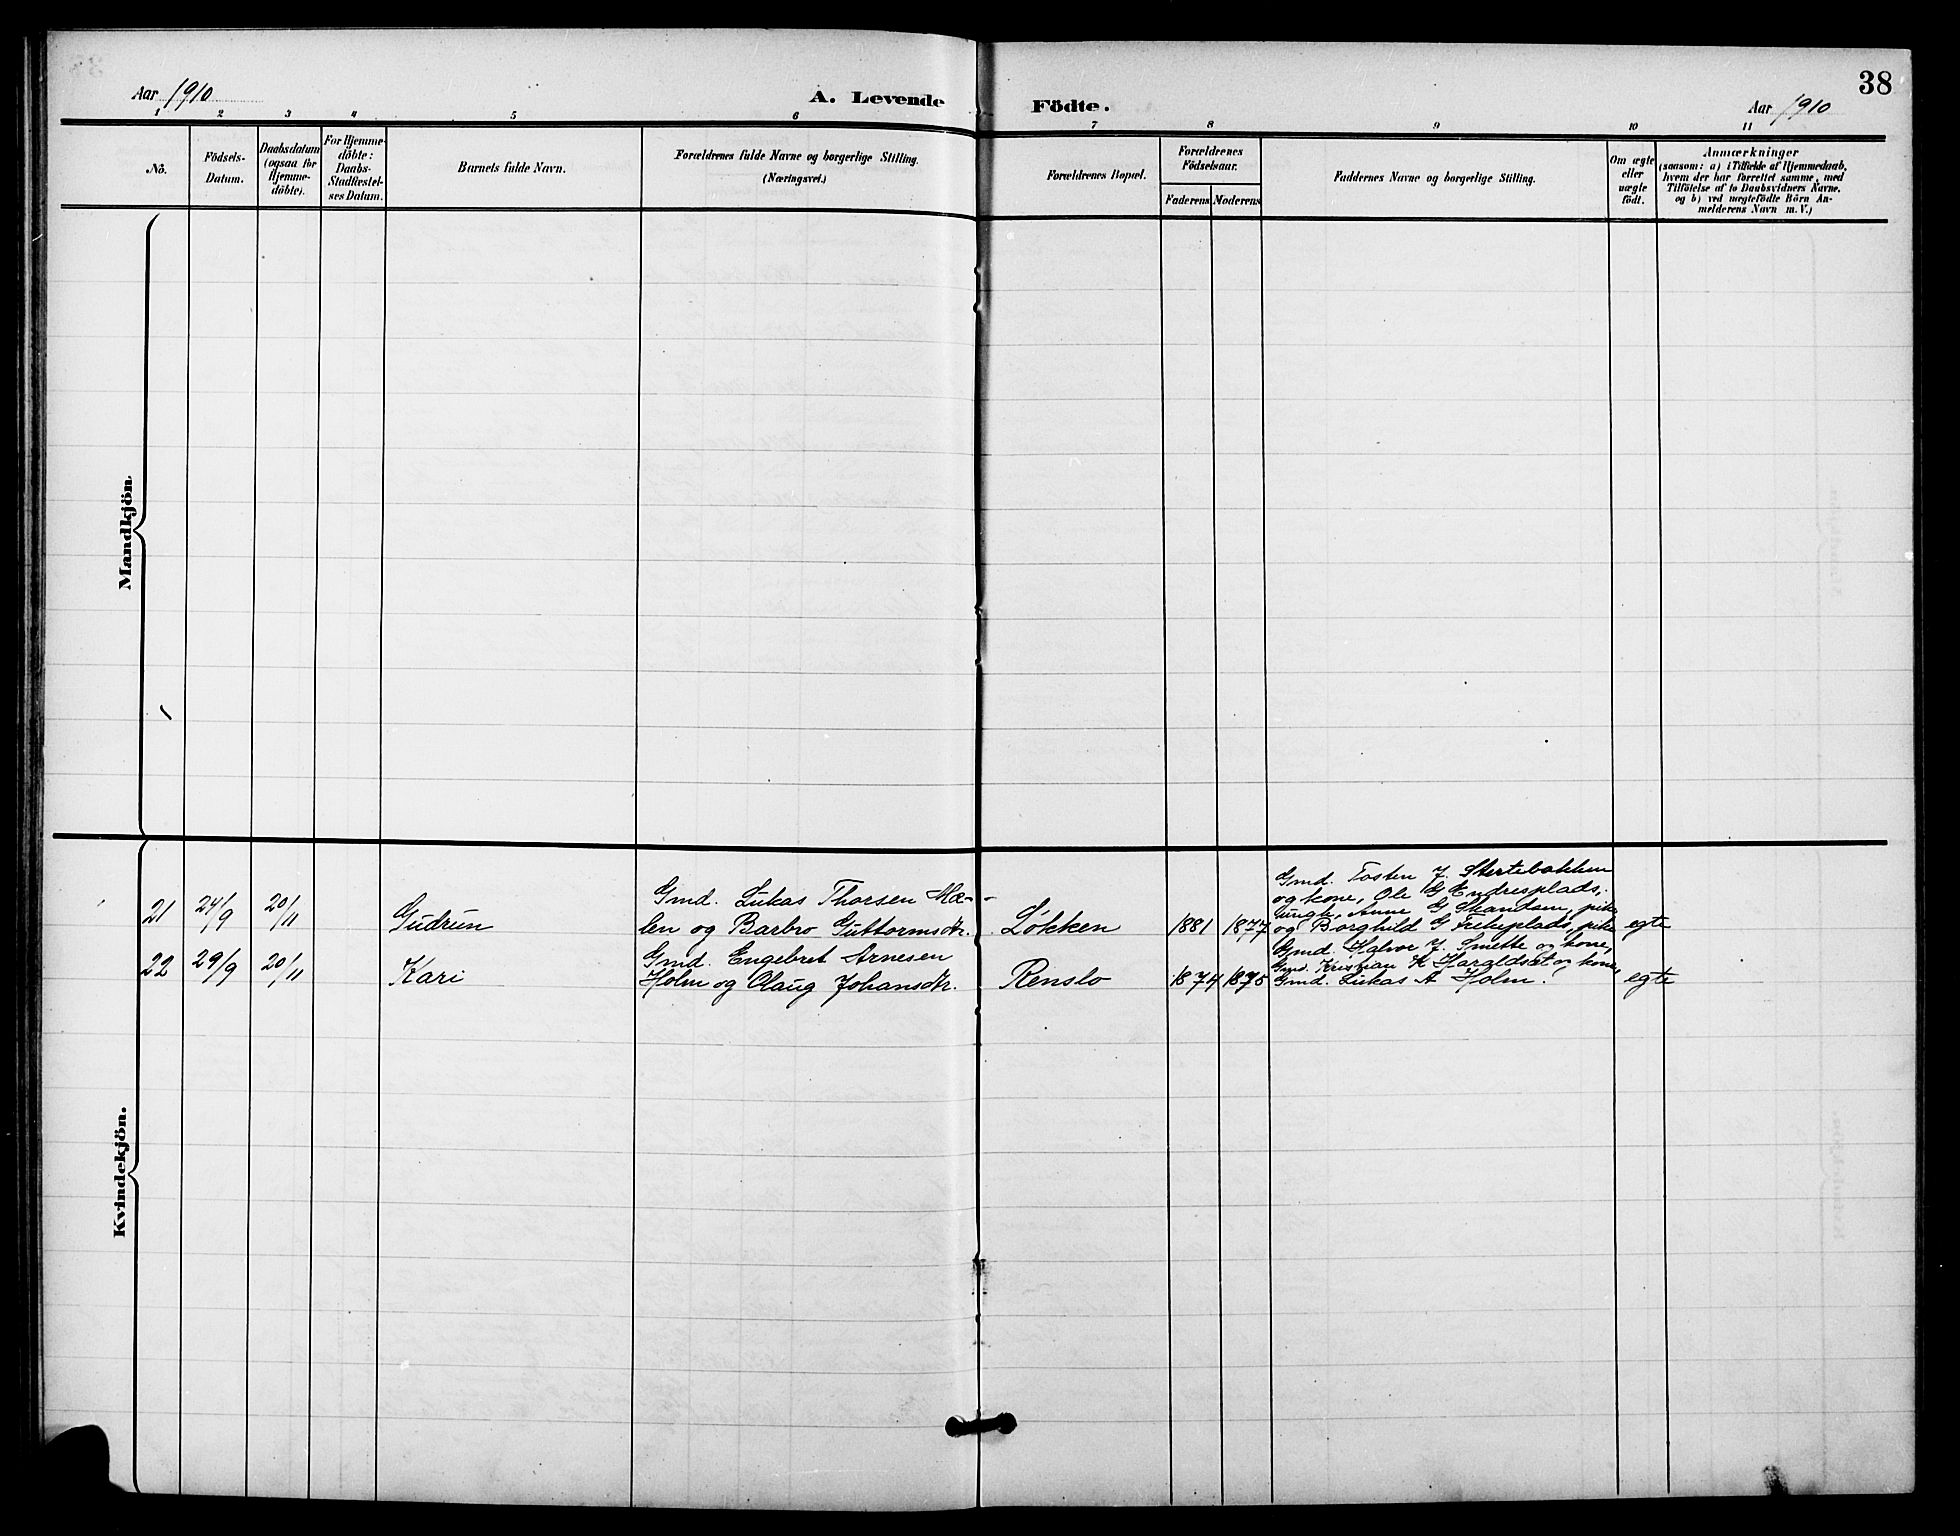 38
Aar 1910
A. Levende Födte.
Aar 1910
1 2 3 4 5 6 7 8 9 10 11
No.
Födsels-
Datum.
Daabsdatum
(ogsaa for
Hjemme-
döbte).
For Hjemme-
döbte:
Daabs-
Stadfæstel-
ses Datum.
Barnets fulde Navn.
Forældrenes fulde Navne og borgerlige Stilling.
(Næringsvei.)
Forældrenes Bopæl.
Forældrenes
Födselsaar.
Faderens Moderens
Faddernes Navne og borgerlige Stilling.
Om ægte
eller
uægte
födt.
Anmærkninger
(saasom: a) i Tilfælde af Hjemmedaab,
hvem der har forrettet samme, med
Tilföielse af to Daabsvidners Navne.
og b) ved uægtefödte Börn An-
melderens Navn m. V.)
Mandkjön.
Kvindekjön.
21 24/9 20/11 Gudrun
Gmd. Lukas Thoesen Mæ-
len og Barbro Guttormsdtr.
Løkken 1881 1877
Gmd. Tosten J. Stertebakken
og kone, Ole G Endresplads,
ungk, Anne G Skandam, pike
og Borghild G Frekeplads, pike
egte
22 29/9 20/11 Kari
Gmd. Engebret Arnesen
Holm og Olaug Johansdtr.
Renslo 1874 1875
Gmd. Halvor J. Smette og kone,
Gmd. Kristian K Haraldset og kone,
Gmd. Lukas A Holm.
egte